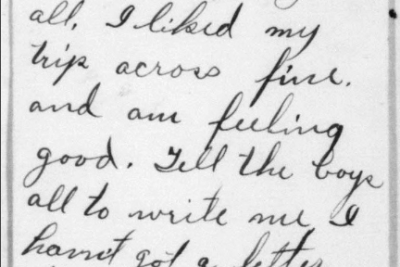 all. I liked my
trip across fine.
and am feeling
good. Tell the boys
all to write me I
havn't got a letter